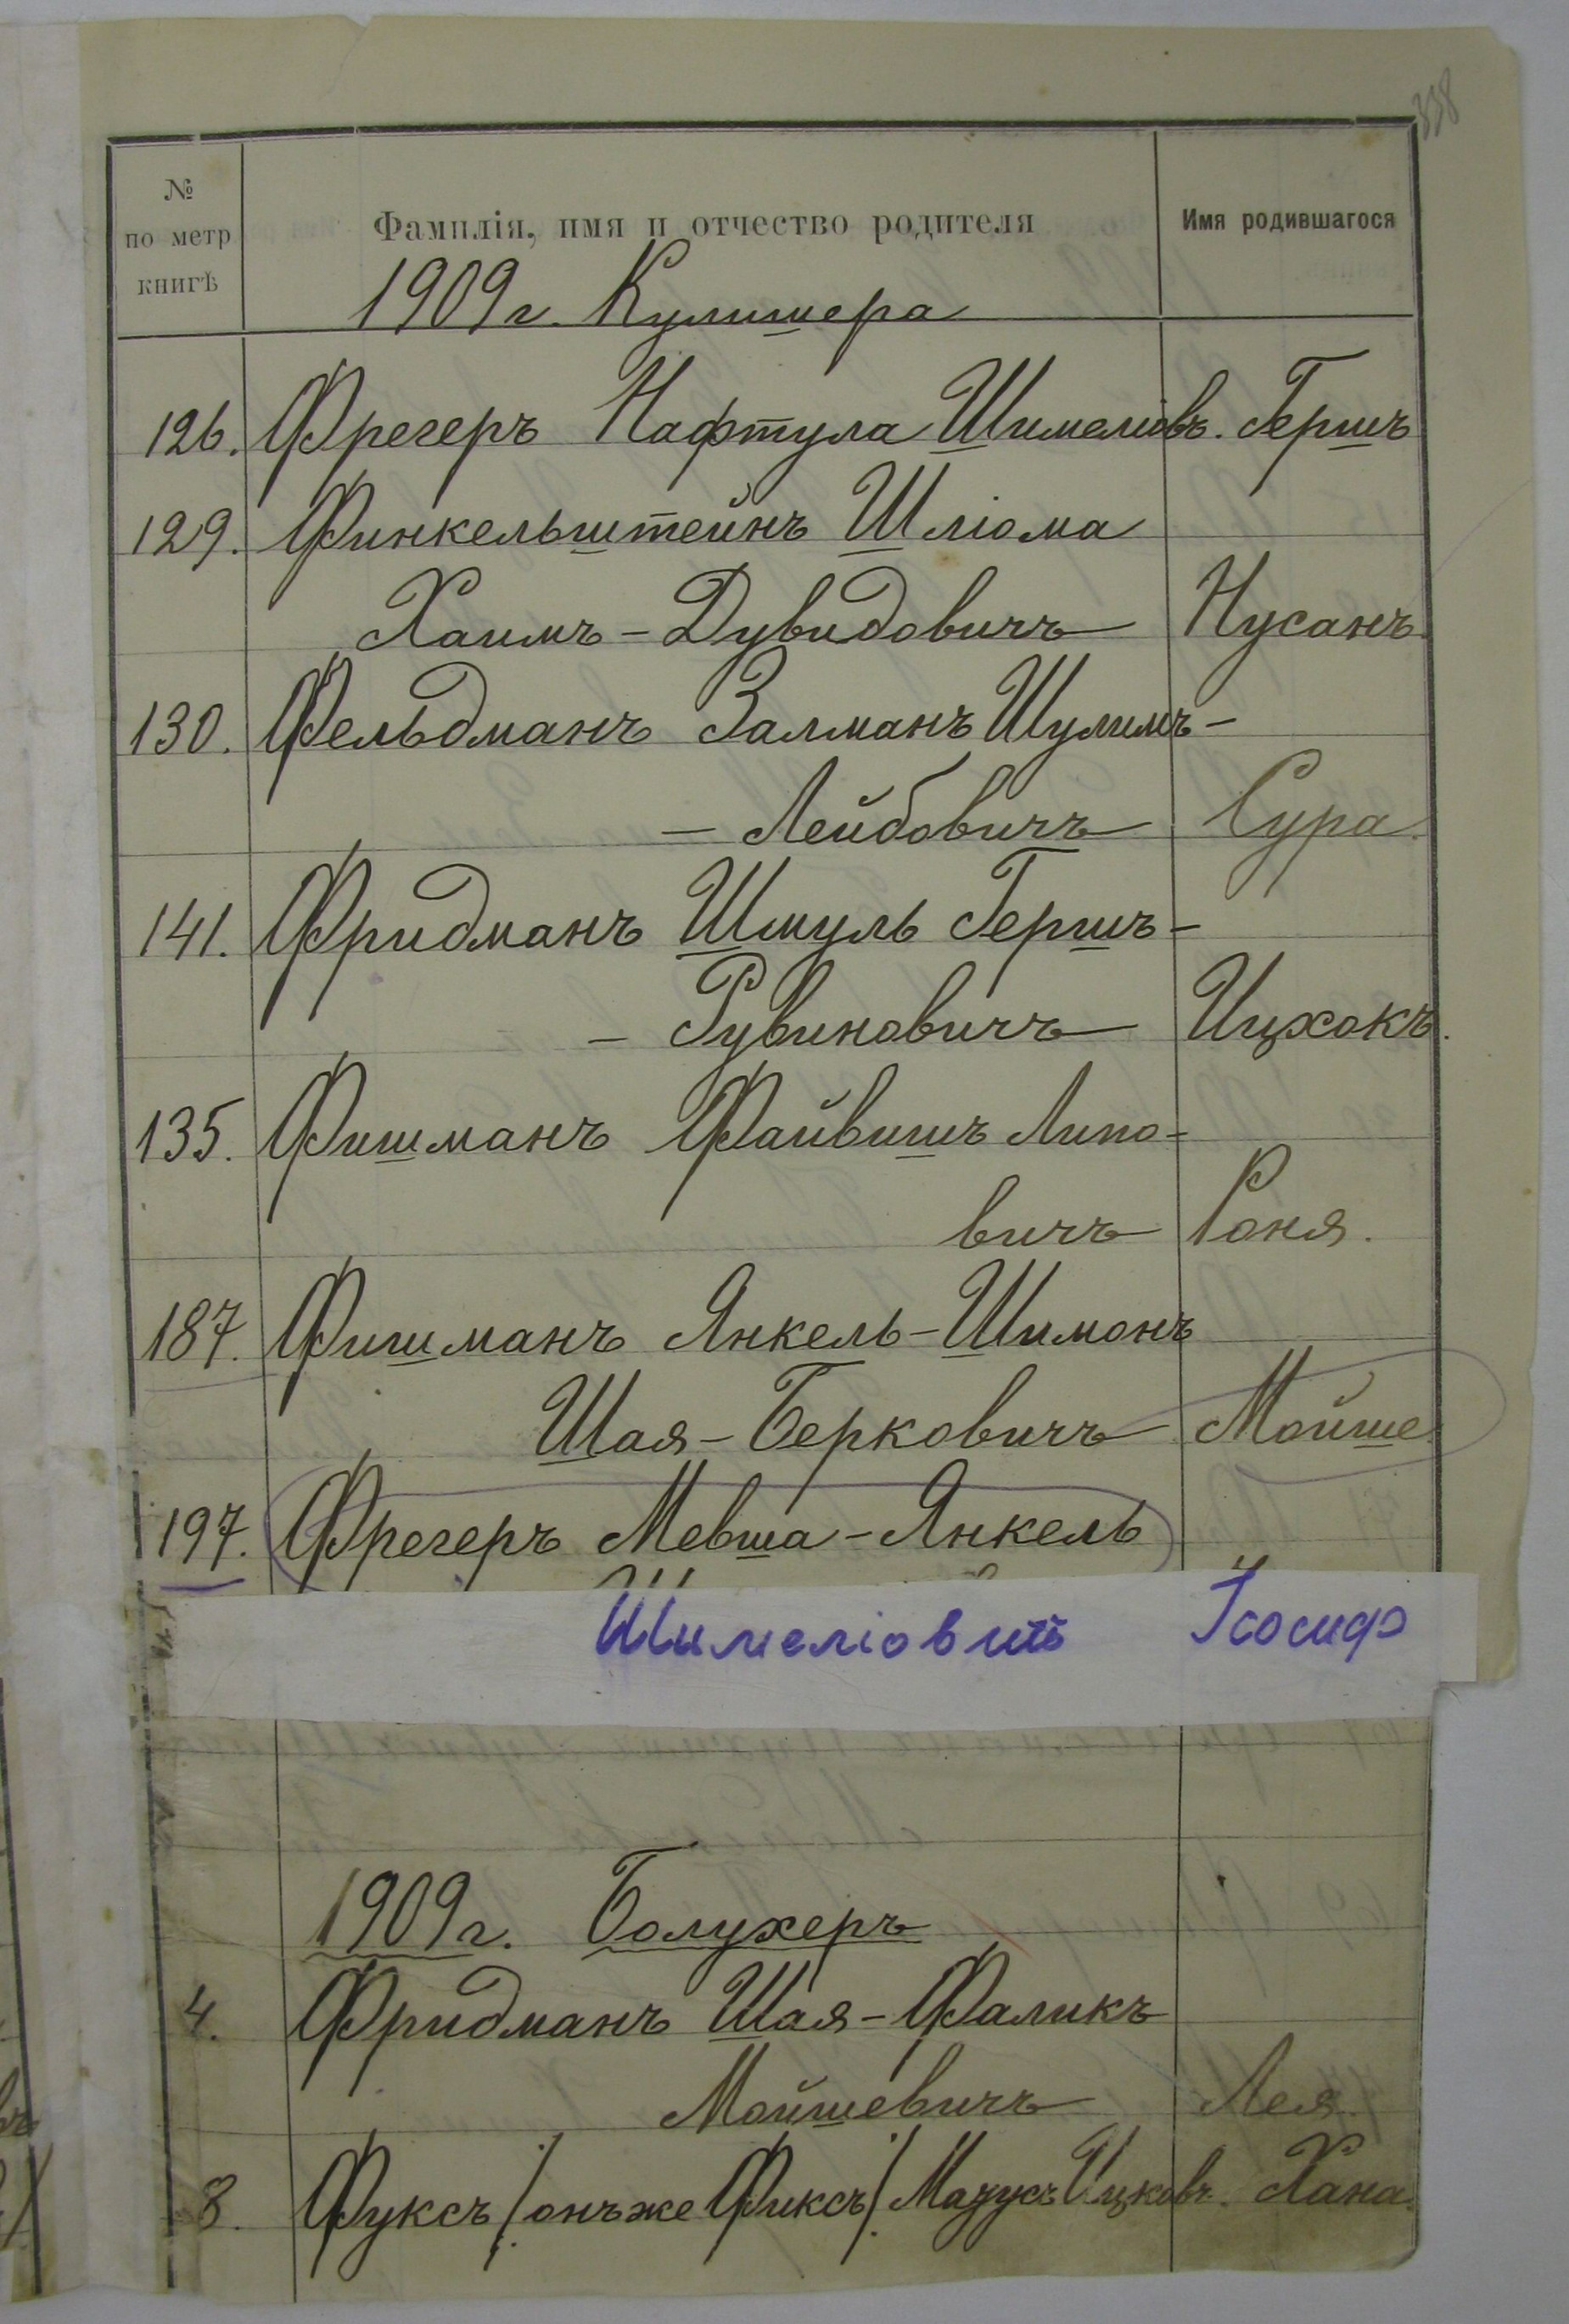 338
№ по метр книгѣ
Фамилія, имя и отчество родителя
Имя родившагося
1909 г. Кулишера
126. Фрегеръ Нафтула Шимеліовъ. Гершъ
129. Финкельштейнъ Шліома
Хаимъ-Дувидовичъ Нусанъ.
130. Фельдманъ Залманъ Шулимъ-
- Лейбовичъ Сура.
141. Фридманъ Шмуль Гершъ-
- Рувиновичъ Ицхокъ.
135. Фишманъ Файвишъ Липо-
вичъ Роня.
187. Фишманъ Янкель-Шимонъ
Шая-Берковичъ Мойше
197. Фрегеръ Мевша-Янкель
Шимеліовичъ Іосифъ
1909 г. Болухеръ
4. Фридманъ Шая-Фаликъ
Мойшевичъ Лея.
8. Фуксъ /онъ же Фиксъ/ Мазусъ Ицковъ. Хана.